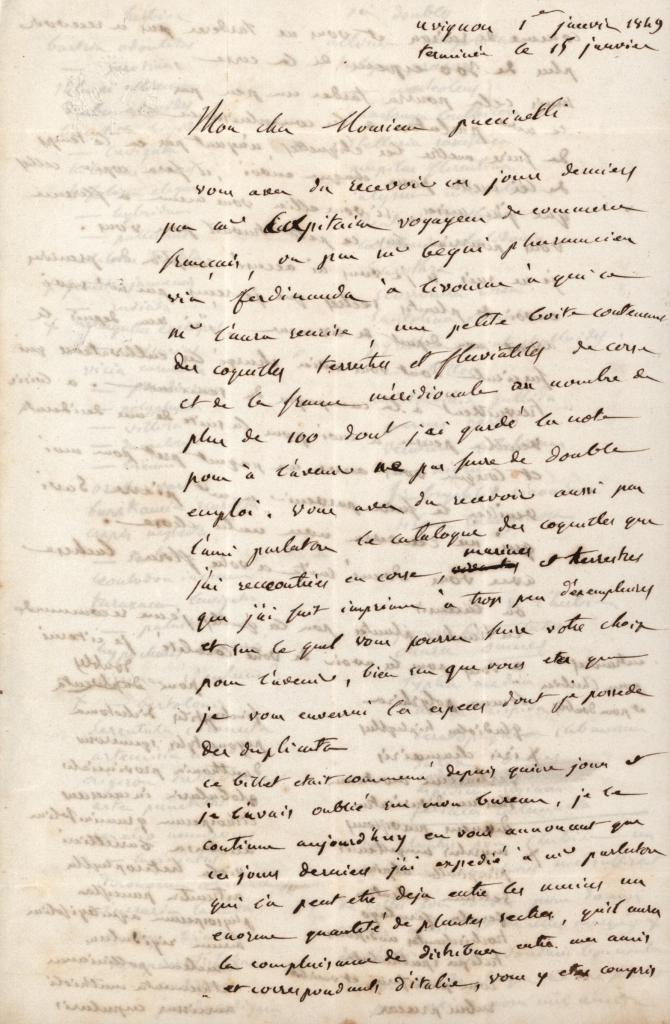 avignon 1er janvier 1849
terminée le 15 janvier
Mon cher Monsieur puccinelli
vous avez du recevoir ces jours derniers
par mr Capitain voyageur de commerce
francais, ou par mr bequi pharmacien
via ferdinanda à livourne à qui ce
mr l'aura remise, une petite boite contenant
des coquilles terrestres et fluviatiles de corse
et de la france méridionale au nombre de
plus de 100 dont j'ai gardé la note
pour à l'avenir ne pas faire de double
emploi. vous avez du recevoir aussi par
l'ami parlatore le catalogue des coquilles que
j'ai rencontrées en corse, marines et terrestres
que j'ai fait imprimer à trop peu d'exemplaires
et sur le quel vous pourrez faire votre choix
pour l'avenir, bien sur que vous etes que
je vous enverrai les especes dont je possede
des duplicata
ce billet etait commencé depuis quinze jours et
je l'avais oublié sur mon bureau, je le
continue aujourd'huy en vous annoncant que
ces jours derniers j'ai expedié à mr parlatore
qui l'a peut etre deja entre les mains une
enorme quantité de plantes seches, qu'il aura
la complaisance de distribuer entre mes amis
et correspondants d'italie, vous y etes compris